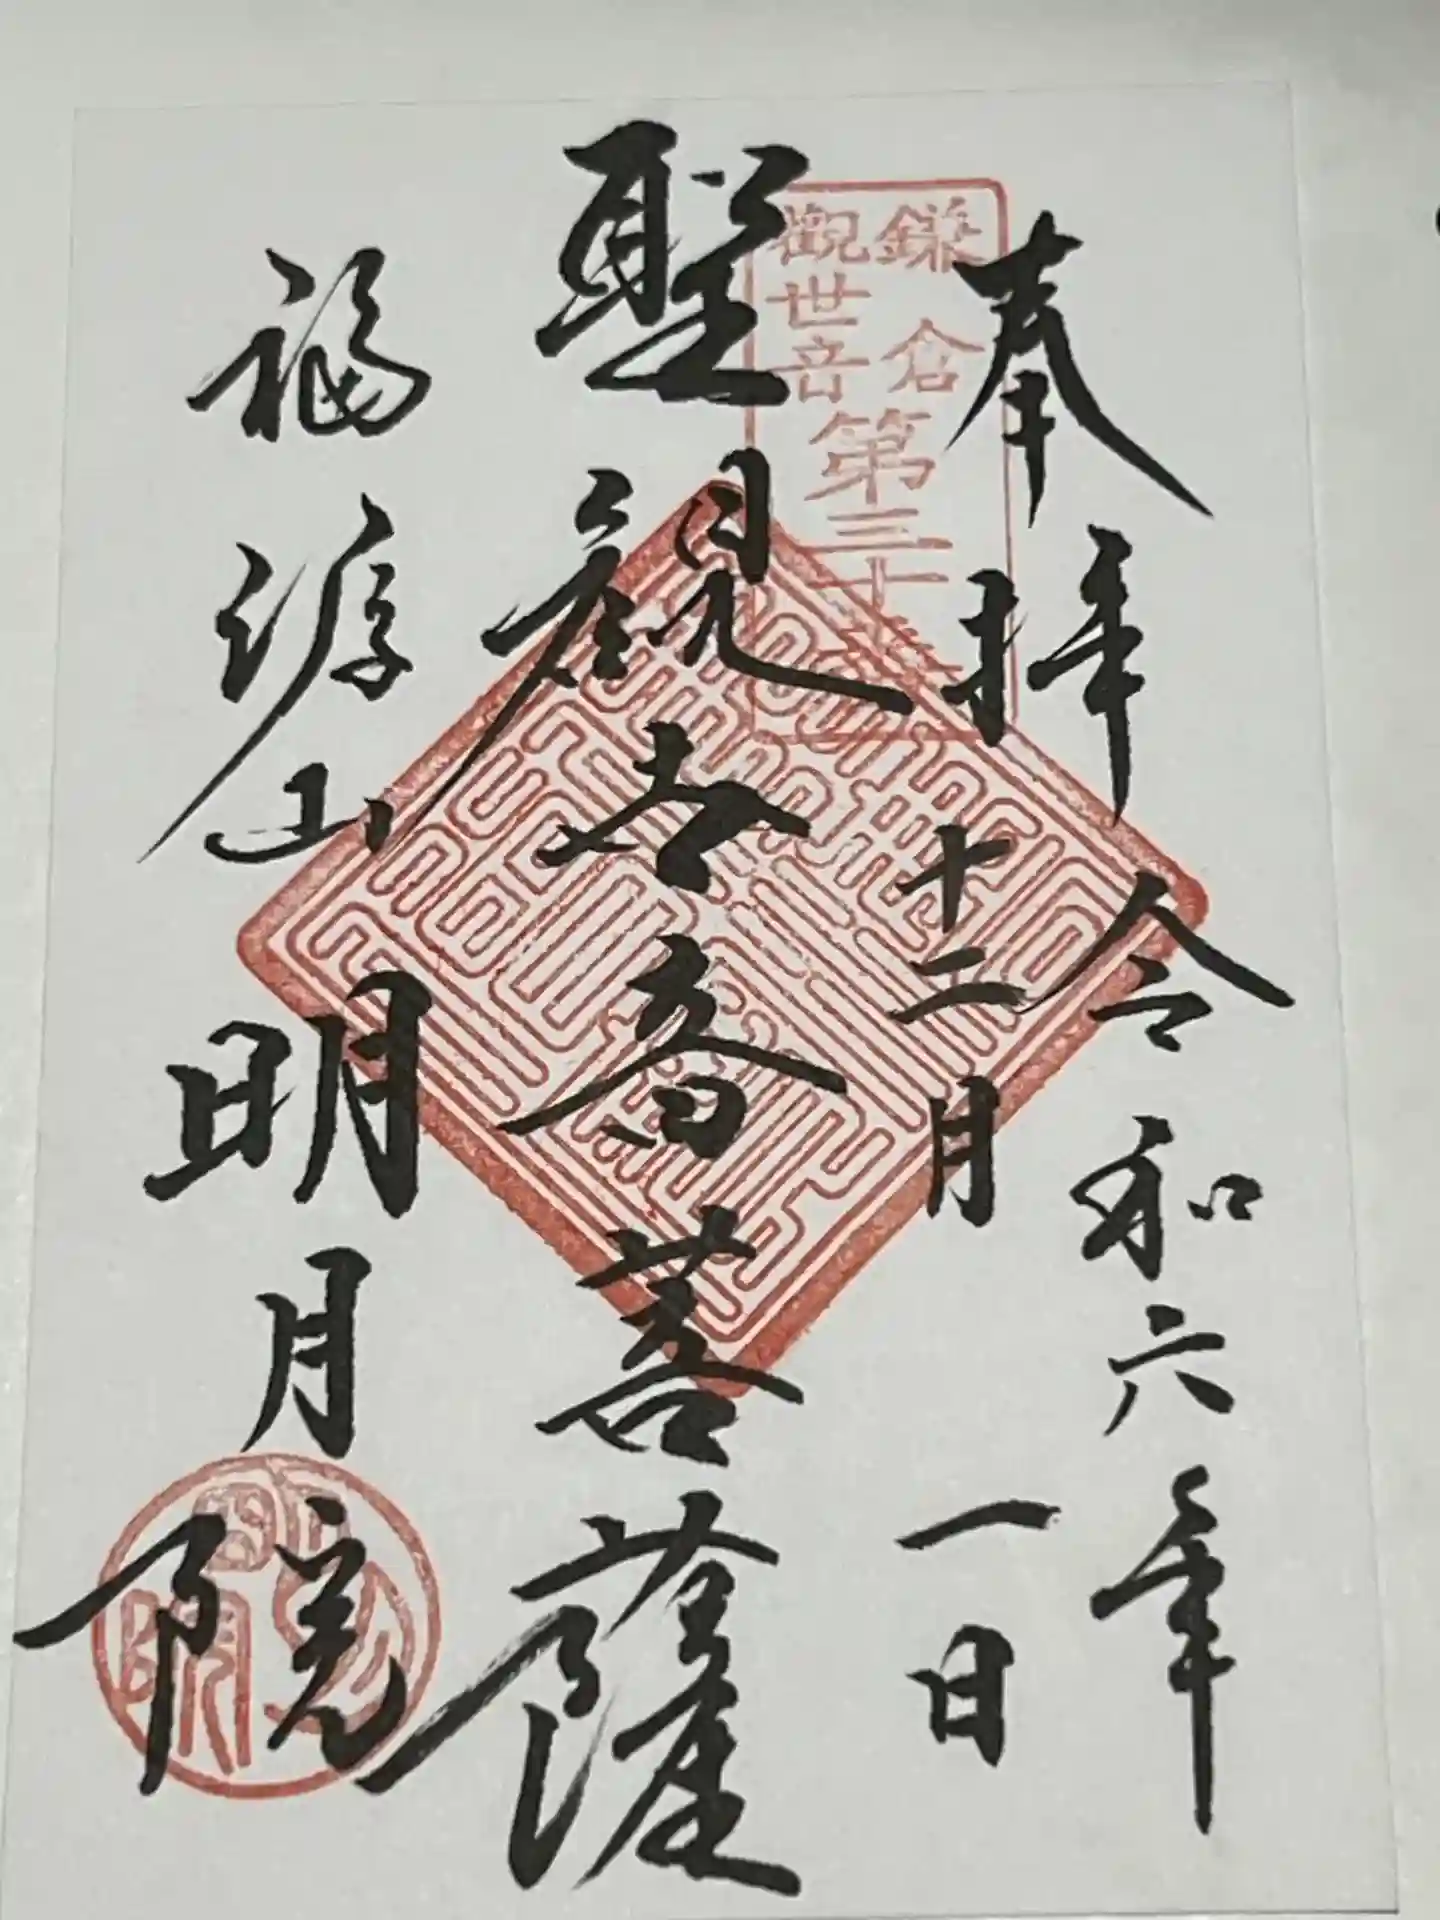 奉拝
令和六年
十二月一日
鎌倉
觀世音
第三十番
聖観世音菩薩
福源山
明月院